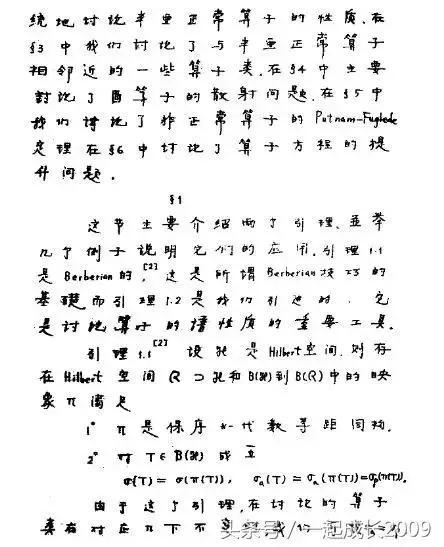 统地讨论半亚正常算子的性质.在
§3中我们讨论了与半亚正常算子
相邻近的一些算子类.在§4中主要
讨论了酉算子的散射问题.在§5中
我们讨论了非正常算子的Putnam-Fuglede
定理在§6中讨论了算子方程的提
升问题.
§1
这节主要介绍两个引理,並举
几个例子说明它们的应用.引理1.1
是Berberian的,[2]这是所谓Berberian技巧的
基礎而引理1.2是我们引进的.它
是讨论算子的谱性质的重要工具.
引理1.1[2] 设ℋ是Hilbert空间.则存
在Hilbert空间ℛ⊃ℋ和B(ℋ)到B(ℛ)中的映
象π满足
1° π是保序*-代数等距同构.
2° 对T∈B(ℋ)成立
σ(T)=σ(π(T)), σa(T)=σa(π(T))=σp(π(T)).
由于这个引理,在讨论的算子
类在对应π下不
头条号/一起成长2009